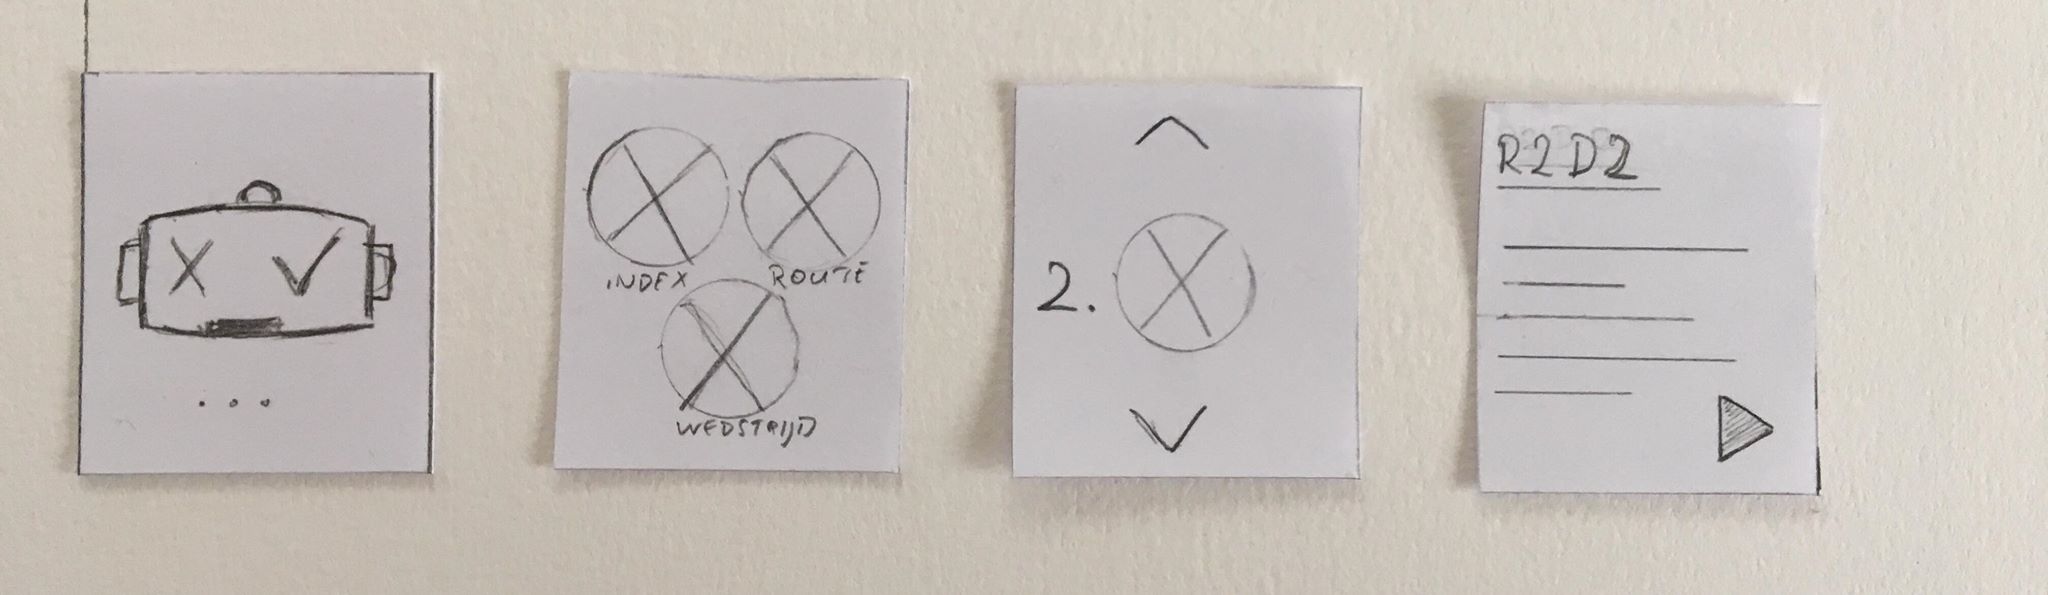 INDEX
ROUTE
WEDSTRIJD
2.
R2D2